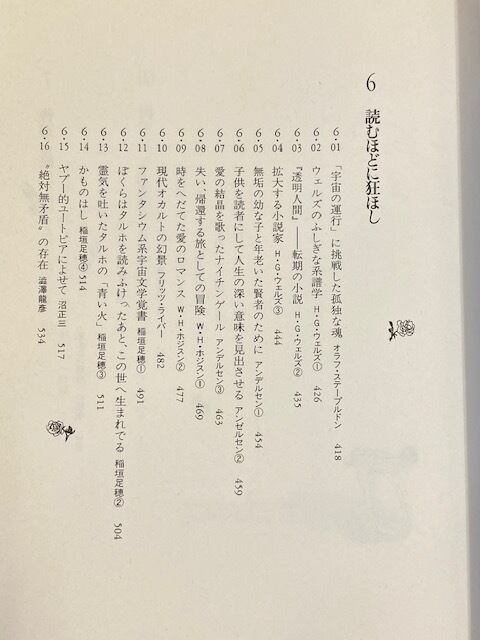 6 読むほどに狂ほし
6・01 「宇宙の運行」に挑戦した孤独な魂 オラフ・ステープルドン 418
6・02 ウェルズのふしぎな系譜学 H・G・ウェルズ① 426
6・03 『透明人間』──転期の小説 H・G・ウェルズ② 435
6・04 拡大する小説家 H・G・ウェルズ③ 444
6・05 無垢の幼な子と年老いた賢者のために アンデルセン① 454
6・06 子供を読者にして人生の深い意味を見出させる アンゼルセン② 459
6・07 愛の結晶を歌ったナイチンゲール アンデルセン③ 463
6・08 失い、帰還する旅としての冒険 W・H・ホジスン① 469
6・09 時をへだてた愛のロマンス W・H・ホジスン② 477
6・10 現代オカルトの幻景 フリッツ・ライバー 482
6・11 ファンタシウム系宇宙文学覚書 稲垣足穂① 491
6・12 ぼくらはタルホを読みふけったあと、この世へ生まれでる 稲垣足穂② 504
6・13 霊気を吐いたタルホの「青い火」 稲垣足穂③ 511
6・14 かものはし 稲垣足穂④ 514
6・15 ヤプー的ユートピアによせて 沼正三 517
6・16 〝絶対無矛盾〟の存在 澁澤龍彦 534